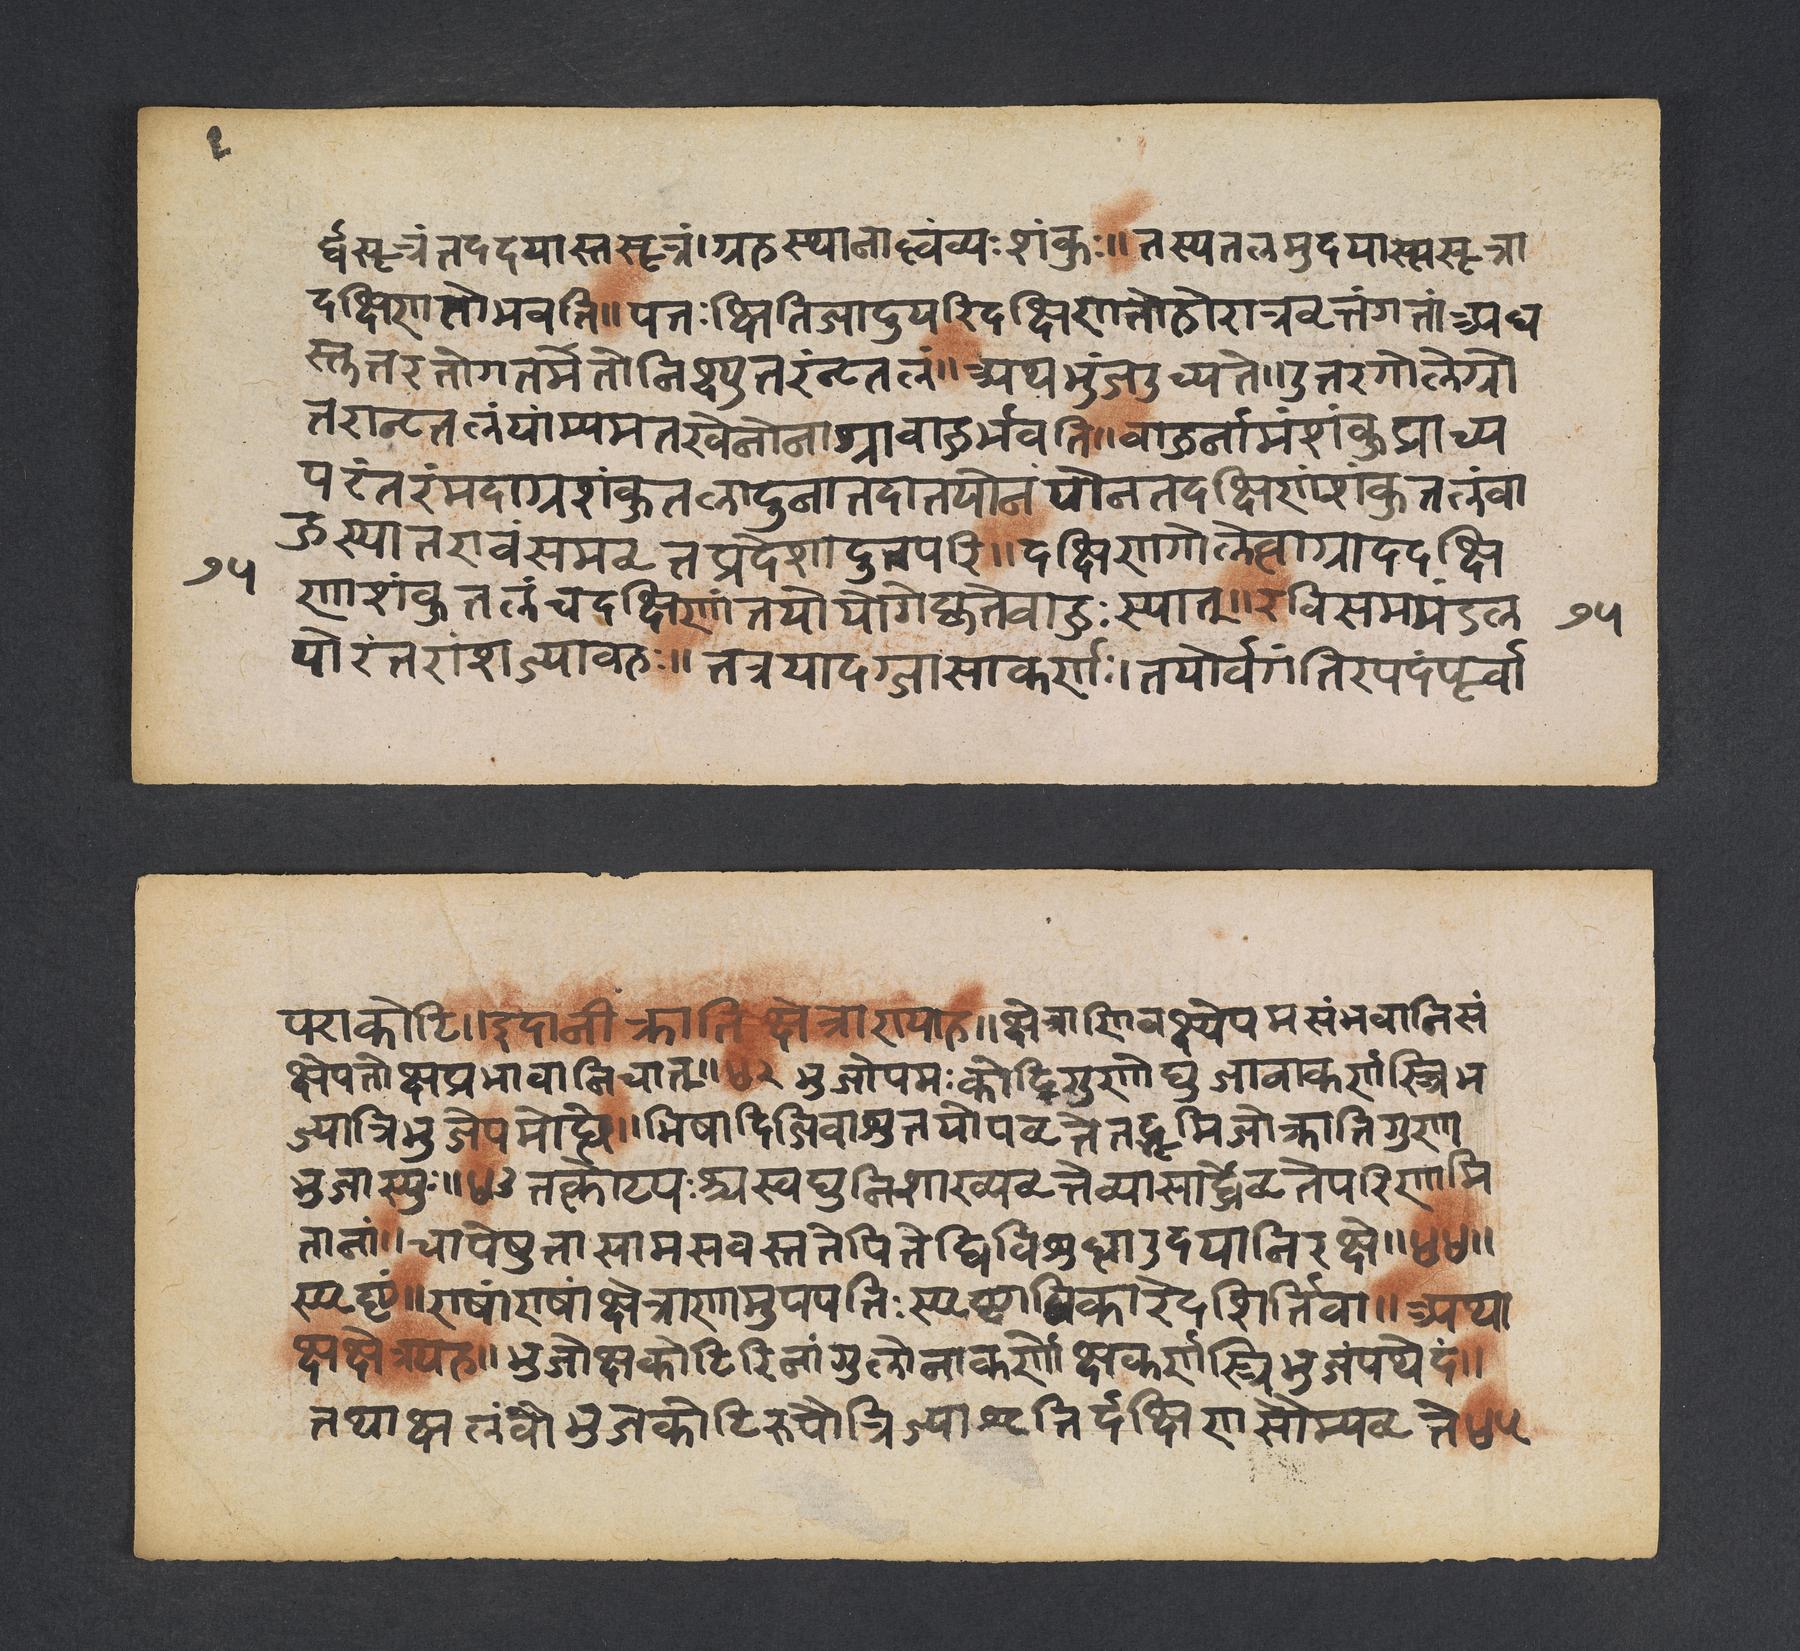 १
र्ध्वसूत्रं तददयास्तसूत्रं।ग्रहस्थानाल्लंव्यः शंकुः॥ तस्यतलमुदयास्तसूत्रा
दक्षिणातोभवति॥ यतः क्षितिजादुपरिदक्षिणतोहोरात्रवृत्तंगतां अध
स्तूत्तरतोगतमेतोनि उत्तरं तलं॥ अथभुंजउच्यते॥उत्तरगोलेग्रो
तरा तलंयांम्यम नोनाग्रावाहुर्भवति॥वाहुर्नामंशंकुप्राच्य
परंतरंमदाग्रशंकुतलादुनातदातयोनं योनतदक्षिणंशंकुतलंवा
हुस्यातरावंसमवृत्तप्रदेशादुनपरि॥ दक्षिणगोले ग्रादददक्षि
णाशंकुतलंचदक्षिणं तयोर्योगे वाहुः स्यात्॥रविसममंडल
७५
७५
योरंतरांशज्यावहः॥ तत्रयादग्ज्यासाकर्णः। तयोर्वर्गंतिरपदंपूर्वा
पराकोटि॥इदानीं क्रातिक्षेत्राराया ह॥क्षेत्राणिवक्ष्येपमसंभवानिसं
क्षेपतोक्षप्रभावानिचात्॥४२ भुजोपमः कोद्विगुणोद्युजावाकर्णस्त्रिभ
ज्यात्रिभुजेपमोत्थे॥मेषादिजिवाश्रुतयोपवृत्तेतद्भूमिजोक्रातिगुणा
भुजास्युः॥४३ तत्कोटयः स्वद्युनिशाख्यवृत्तेव्यासार्द्धेवृतेपरिणामि
तानां॥चापेषुतासामसवस्ततेपितेद्धिविशुद्धाउदयानिरक्षे॥४४॥
स्पष्टं॥राषांराषांक्षेत्राणामुपपत्तिः स्पष्टाधिकारेदर्शितिवा॥ अथा
क्षक्षेत्रयह॥भुजोक्षकोटिरिनांगुलोनाकर्णोक्षकर्णस्त्रिभुजंपथेदं॥
तथाक्षलंवोभुजकोटिरुपोत्रिज्याश्रुतिर्दक्षिणसौम्यवृत्ते४५